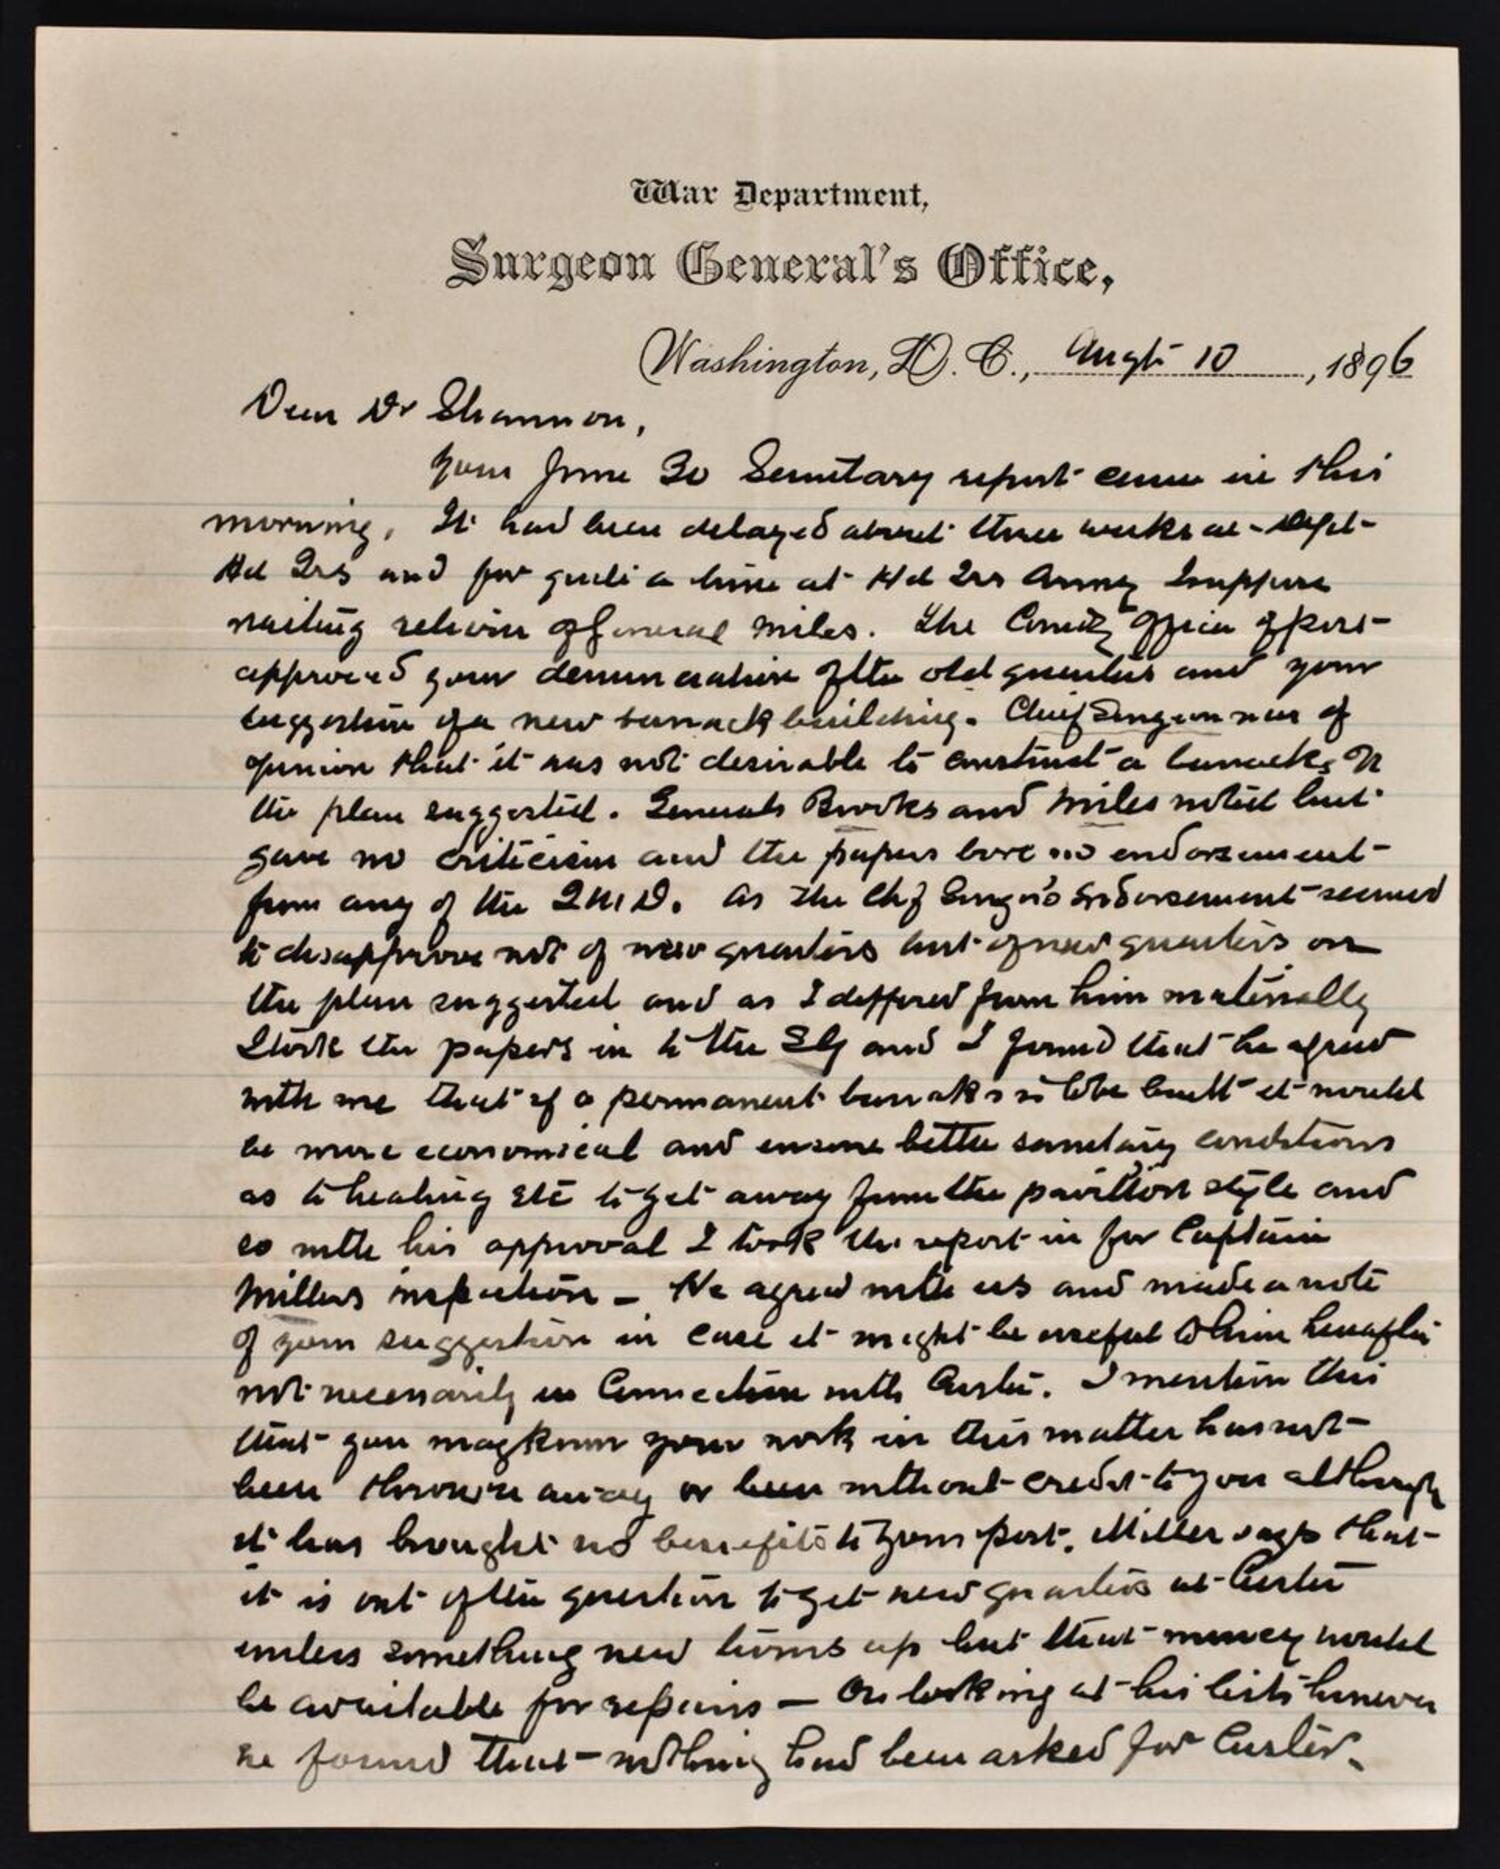 War Department,
Surgeon General's Office,
Washington, D. C., Augt 10, 1896
Dear Dr Shannon,
Your June 30 Sanitary report came in this
morning. It had been delayed about three weeks at Dept
Hd Qrs and for quite a time at Hd Qrs Army I suppose
waiting return of General Miles. The Comdg Officer of post
approved your denunciation of the old quarters and your
suggestion of a new barrack building. Chief Surgeon was of
opinion that it was not desirable to construct a barracks on
the plan suggested. Generals Brooks and Miles noted but
gave no criticism and the papers bore no endorsement
from any of the QMD. As the Chf Surgeo's Endorsement seemed
to disapprove not of new quarters but of new quarters on
the plan suggested and as I differed from him materially
I took the papers in to the SG and I found that he agreed
with me that if a permanent barracks is to be built it would
be more economical and ensure better sanitary conditions
as to heating etc to get away from the pavillion style and
so with his approval I took the report in for Captain
Millers inspection — He agreed with us and made a note
of your suggestion in case it might be useful to him hereafter
not necessarily in connection with Custer. I mention this
that you may know your work in this matter has not
been thrown away or been without credit to you although
it has brought no benefits to your post. Miller says that
it is out of the question to get new quarters at Custer
unless something new turns up but that money would
be available for repairs — On looking at his lists however
he found that nothing had been asked for Custer.